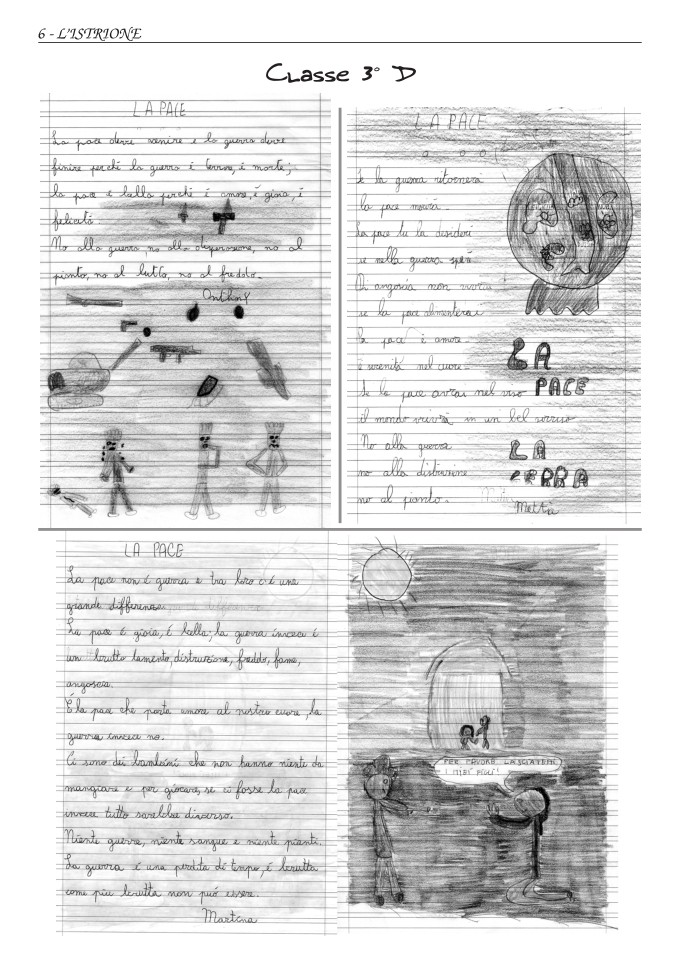 6 - L'ISTRIONE
Classe 3° D
LA PACE
La pace deve venire e la guerra deve
finire perché la guerra è terrore, è morte;
la pace è bella perché è amore, è gioia, è
felicità.
No alla guerra, no alla disperazione, no al
pianto, no al lutto, no al freddo.
Anthony
LA PACE
Se la guerra ritornerà
la pace morirà.
La pace tu la desideri
se nella guerra speri
Di angoscia non vivrai
se la pace alimenterai
la pace è amore
è serenità nel cuore
Se la pace avrai nel viso
il mondo vivrà in un bel sorriso
No alla guerra
no alla distruzione
no al pianto.
Mattia
LA
PACE
LA
LA PACE
La pace non è guerra e tra loro c'è una
grande differenza:
La pace è gioia, è bella; la guerra invece è
un brutto lamento, distruzione, freddo, fame,
angoscia.
È la pace che porta amore al nostro cuore, la
guerra invece no.
Ci sono dei bambini che non hanno niente da
mangiare e per giocare, se ci fosse la pace
invece tutto sarebbe diverso.
Niente guerre, niente sangue e niente pianti.
La guerra è una perdita di tempo, è brutta
come più brutta non può essere.
Martina
PER FAVORE LASCIATEMI
I MIEI FIGLI!